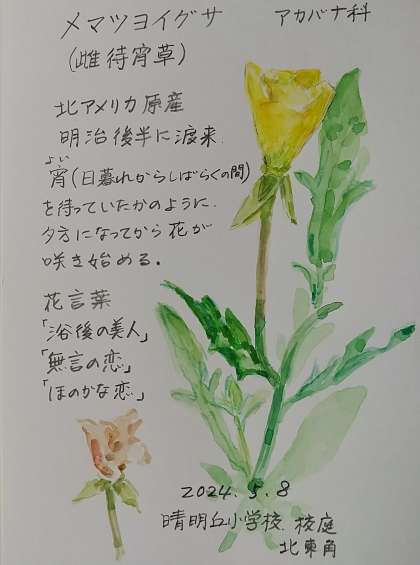 メマツヨイグサ アカバナ科
(雌待宵草)
北アメリカ原産
明治後半に渡来
よい
宵(日暮れからしばらくの間)
を待っていたかのように
夕方になってから花が
咲き始める。
花言葉
「浴後の美人」
「無言の恋」
「ほのかな恋」
2024.5.8
晴明丘小学校 校庭
北東角